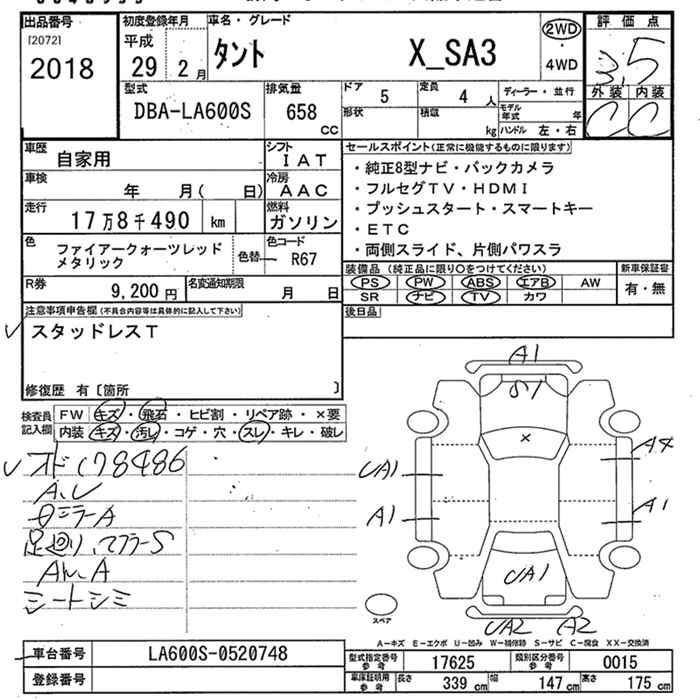 出品番号
[2072]
2018
初度登録年月
平成
29 2月
車名・グレード
タント X_SA3
2WD
・
4WD
評価点
3.5
外装 内装
C C
型式
DBA-LA600S
排気量
658 cc
ドア 5
定員 4 人
形状
積載 kg
ディーラー・並行
モデル年式 年
ハンドル 左・右
車歴
自家用
シフト
IAT
車検
年 月( 日)
冷房
AAC
走行
17万8千490 km
燃料
ガソリン
色
ファイアークォーツレッド
メタリック
色替
色コード
R67
R券
9,200円
名変通知期限
月 日
セールスポイント(正常に機能するものに限ります)
・純正8型ナビ・バックカメラ
・フルセグTV・HDMI
・プッシュスタート・スマートキー
・ETC
・両側スライド、片側パワスラ
装備品 (純正品に限り○をつけてください)
PS PW ABS エアB AW
SR ナビ TV カワ
新車保証書
有・無
後日品
注意事項申告欄(不具合内容等は具体的に記入して下さい)
スタッドレスT
修復歴 有〔箇所 〕
検査員
記入欄
FW キズ・飛石・ヒビ割・リペア跡・×要
内装 キズ・汚レ・コゲ・穴・スレ・キレ・破レ
178486
足回り、マフラーS
シートシミ
A1
S1
×
UA1
A4
A1
A1
UA1
UA2 A2
スペア
A-キズ E-エクボ U-凹み W-補修跡 S-サビ C-腐食 XX-交換済
車台番号
LA600S-0520748
登録番号
型式指定番号
参考
17625
類別区分番号
参考
0015
車庫証明用
参考
長さ 339 cm
幅 147 cm
高さ 175 cm